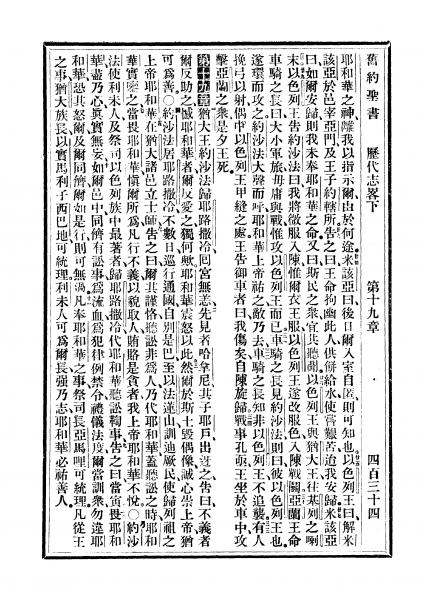 舊約聖書 歷代志畧下 第十九章 四百三十四
耶和華之神離我以指示爾由於何途米該亞曰後日爾入室自匿則可知也以色列王曰解米
該亞於邑宰亞門及王子約轄所告之曰王命拘幽此人供餅給水使嘗艱苦迨我安歸米該亞
曰如爾安歸則我未奉耶和華之命又曰斯民之衆宜共聽聞以色列王與猶大王往基列之喇
末以色列王告約沙法曰我將微服入陳惟爾衣王服以色列王遂改服色入陳戰鬭亞蘭王命
車騎之長曰大小軍旅毋庸與戰惟攻以色列王而已車騎之長見約沙法則曰彼以色列王也
遂環而攻之約沙法大聲而呼耶和華上帝祐之敵乃去車騎之長知非以色列王不追襲有人
挽弓以射偶中以色列王甲縫之處王告御車者曰我傷矣自陳旋歸戰事孔亟王坐於車中攻
擊亞蘭之衆是夕王死
第十九章猶大王約沙法歸耶路撒冷囘宮無恙先見者哈拿尼其子耶戶出迓之告曰不義者
爾反助之憾耶和華者爾反愛之獨何歟耶和華震怒以此然爾於斯土毀偶像誠心崇上帝猶
可爲善〇約沙法居耶路撒冷不數日巡行通國自別是巴至以法蓮山訓迪厥民使歸列祖之
上帝耶和華在猶大諸邑立士師告之曰爾其謹恪聽訟非爲人乃代耶和華蓋聽訟之時耶和
華實鑒之當畏耶和華愼爾所爲凡行不義以貌取人賄賂是貪者我上帝耶和華不悅〇約沙
法使利未人及祭司以色列族中最著者歸耶路撒冷代耶和華聽訟鞫事告之曰當寅畏耶和
華盡乃心眞實無妄如爾邑中同儕有訟事爲流血爲犯律例禁令禮儀法度爾當訓衆勿違耶
和華恐其怒爾及爾同儕爾如是行則可無過凡奉耶和華之事祭司長亞馬哩可統理凡從王
之事猶大族長以實馬利子西巴地可統理利未人可爲爾長強乃志耶和華必祐善人